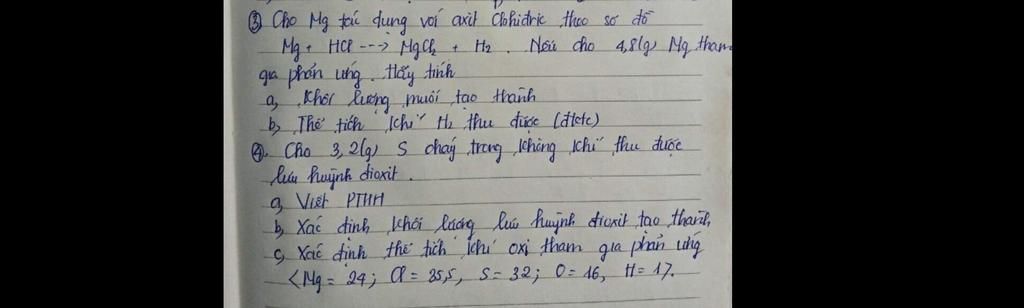 ③ Cho Mg tác dụng với axit Clohidric theo sơ đồ
Mg + HCl ---> MgCl₂ + H₂. Nếu cho 4,8(g) Mg tham
gia phản ứng. Hãy tính
a, Khối lượng muối tạo thành
b, Thể tích khí H₂ thu được (đktc)
④. Cho 3,2(g) S cháy trong không khí thu được
lưu huỳnh đioxit.
a, Viết PTHH
b, Xác định khối lượng lưu huỳnh đioxit tạo thành,
c, Xác định thể tích khí oxi tham gia phản ứng
<Mg = 24; Cl = 35,5, S = 32; O = 16, H = 1>.